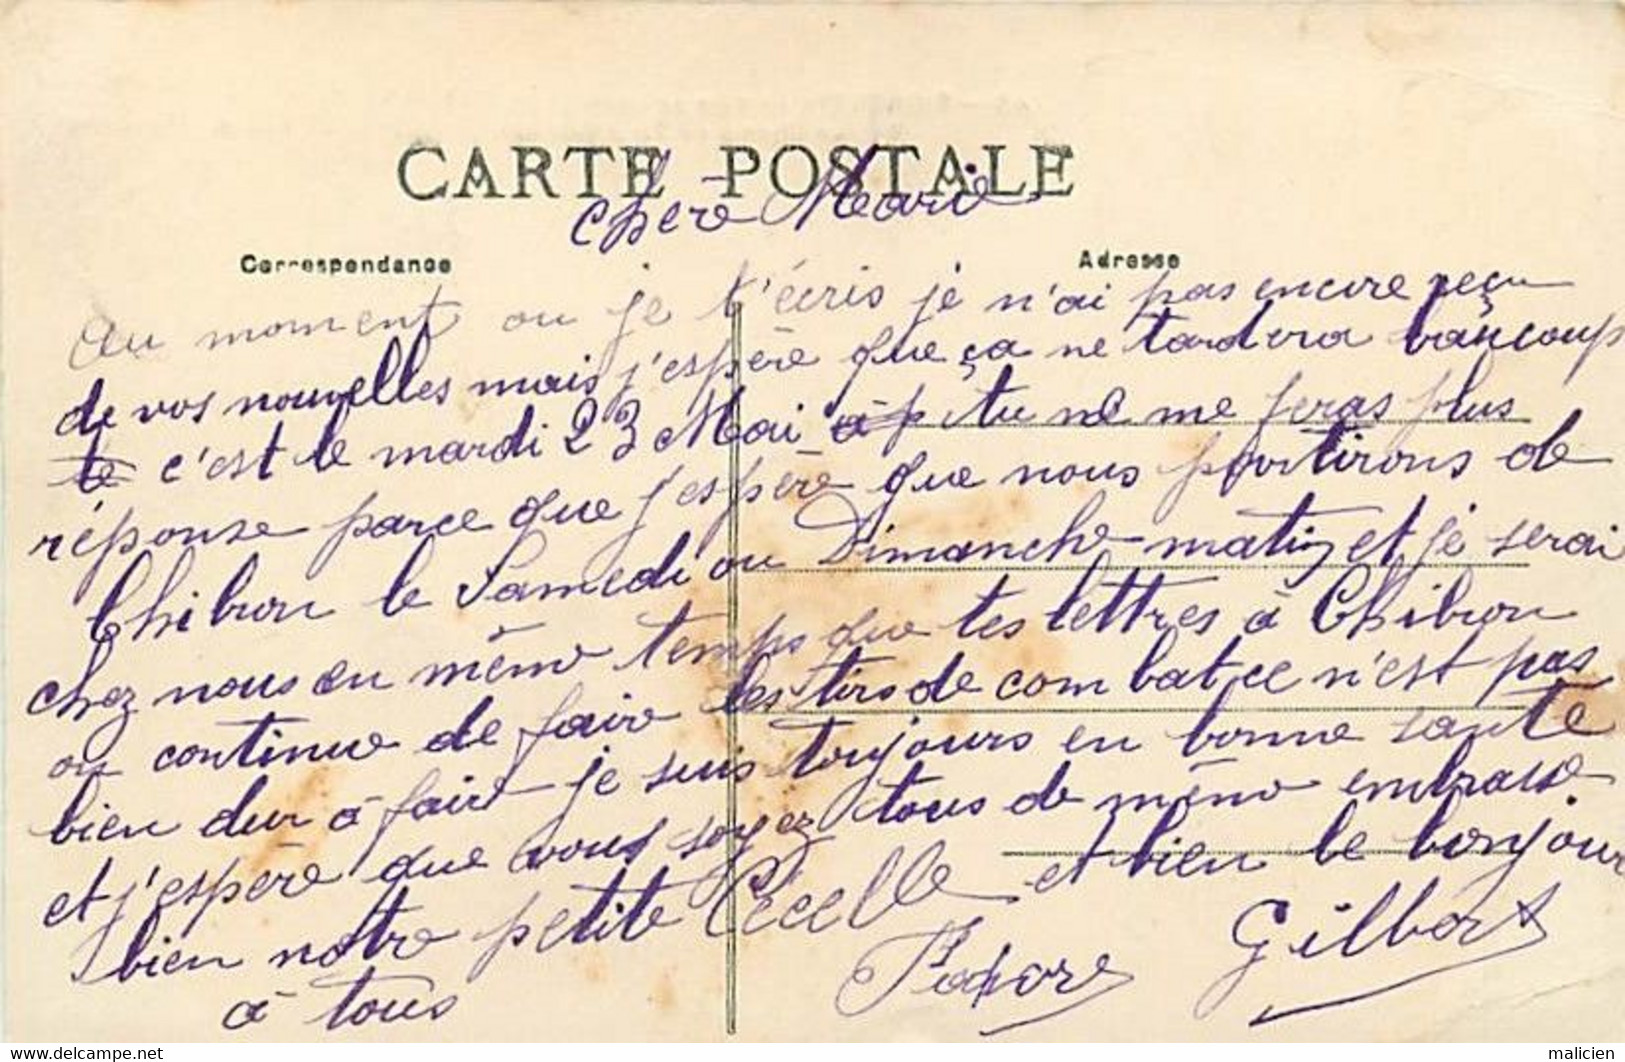 CARTE POSTALE
chère Marie
Correspondance
Adresse
Au moment ou je t'écris je n'ai pas encore reçu
de vos nouvelles mais j'espère que ça ne tardera baucoup
te c'est le mardi 23 Mai à p tu ne me feras plus
réponse parce que j'espère que nous partirons de
Chibron le Samedi ou Dimanche matin et je serai
chez nous en même temps que tes lettres à Chibron
on continue de faire des tirs de combat ce n'est pas
bien dur à faire je suis toujours en bonne santé
et j'espère que vous soyez tous de même embrasse
bien notre petite Cécelle et bien le bonjour
à tous
Gilbert
malicien
delcampe.net